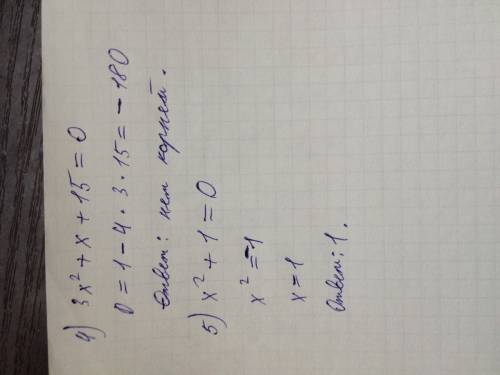 4) 3x² + x + 15 = 0
D = 1 - 4 · 3 · 15 = - 180
Ответ: нет корней.
5) x² + 1 = 0
x² = -1
x = 1
Ответ: 1.